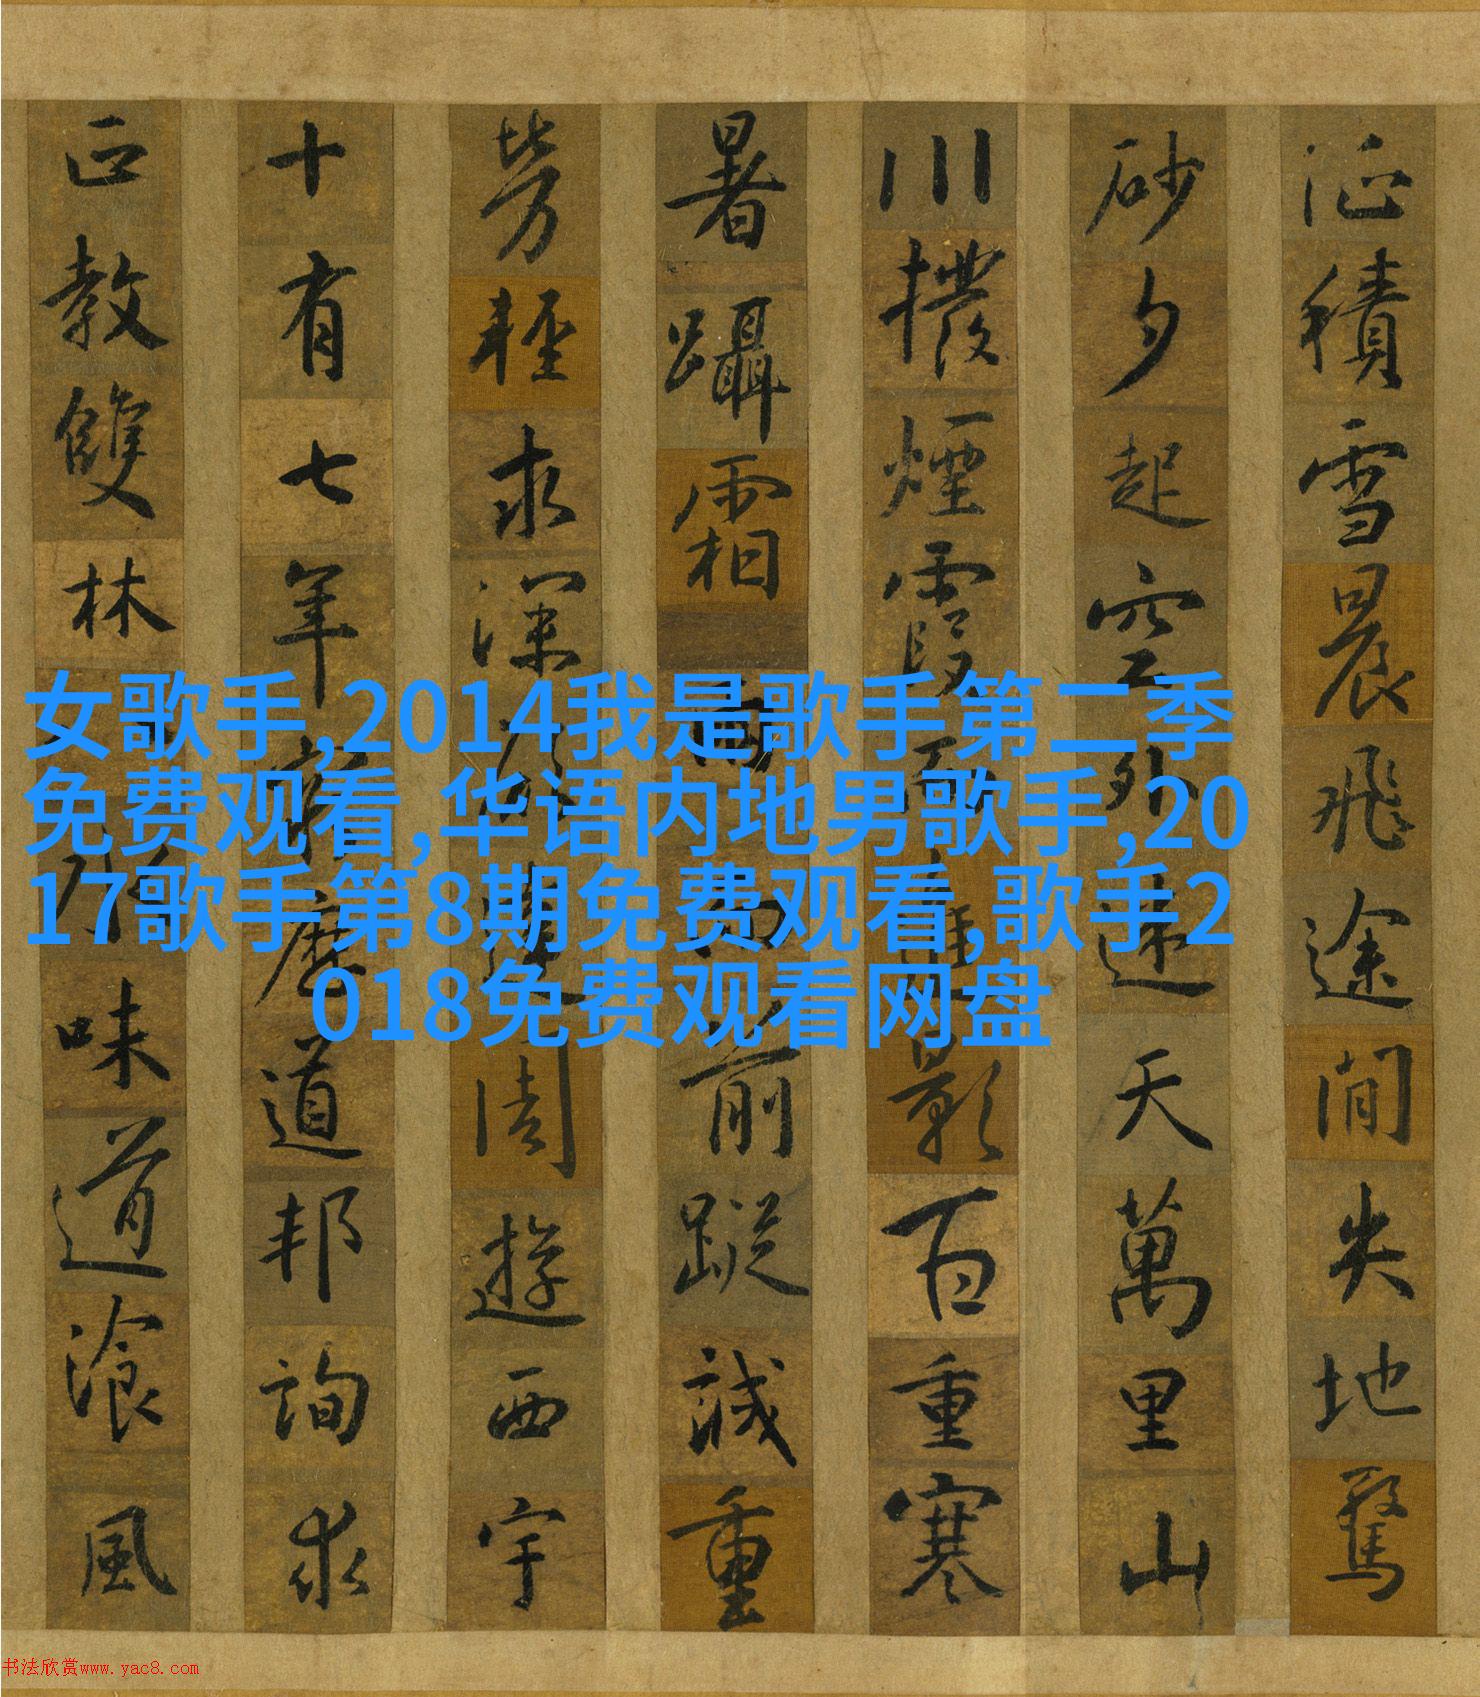 積雪晨飛途間失地驚
砂夕起空外迷天萬里山
川撥煙霞而進影百重寒
暑躡霜雨而前蹤誠重
勞輕求深願達周遊西宇
十有七年窮歷道邦詢求
正教雙林八水味道湌風
女歌手,2014我是歌手第二季
免费观看,华语内地男歌手,20
17歌手第8期免费观看,歌手2
018免费观看网盘
书法欣赏www.yac8.com